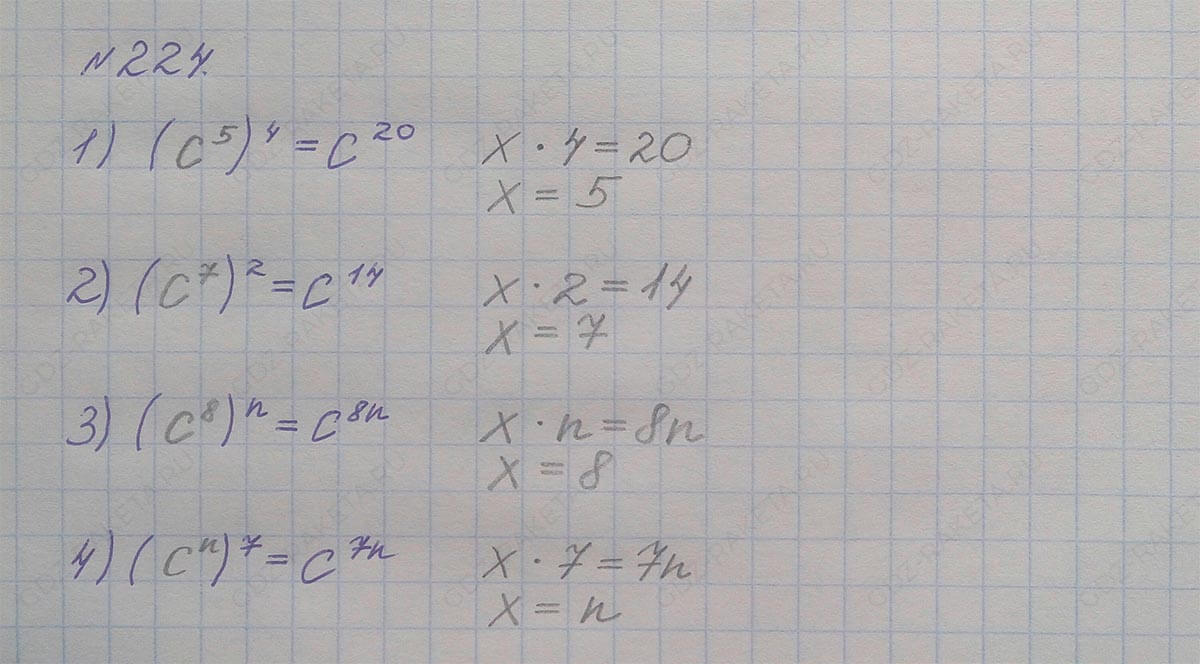 №224.
1) (c⁵)⁴ = c²⁰ x · 4 = 20
x = 5
2) (c⁷)² = c¹⁴ x · 2 = 14
x = 7
3) (c⁸)ⁿ = c⁸ⁿ x · n = 8n
x = 8
4) (cⁿ)⁷ = c⁷ⁿ x · 7 = 7n
x = n
GDZ-RAKETA.RU